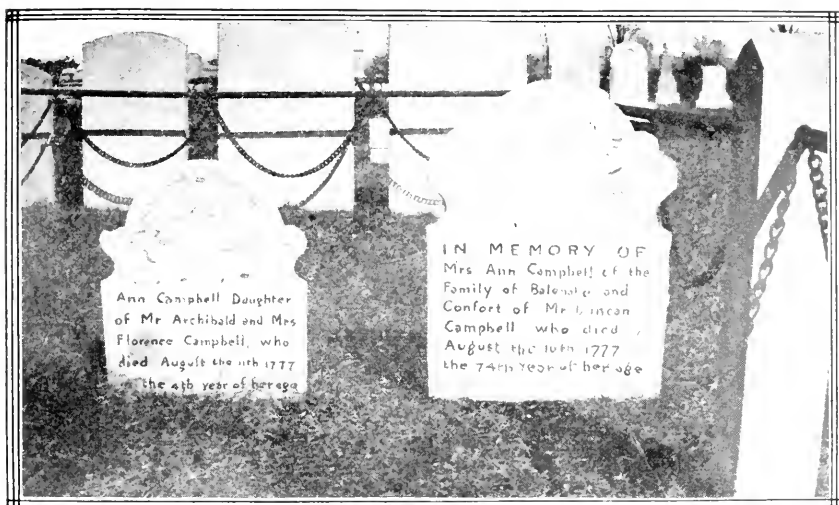 Ann Campbell Daughter
of Mr Archibald and Mrs
Florence Campbell, who
died August the 11th 1777
the 4th year of her age
IN MEMORY OF
Mrs Ann Campbell of the
Family of and
Confort of Mr Duncan
Campbell who died
August the 10th 1777
the 74th Year of her age